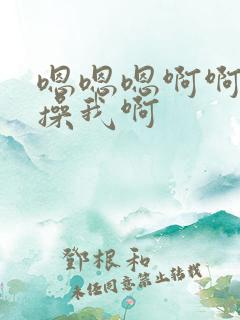 嗯嗯嗯啊啊
操我啊
鄧根和
未经同意禁止转载